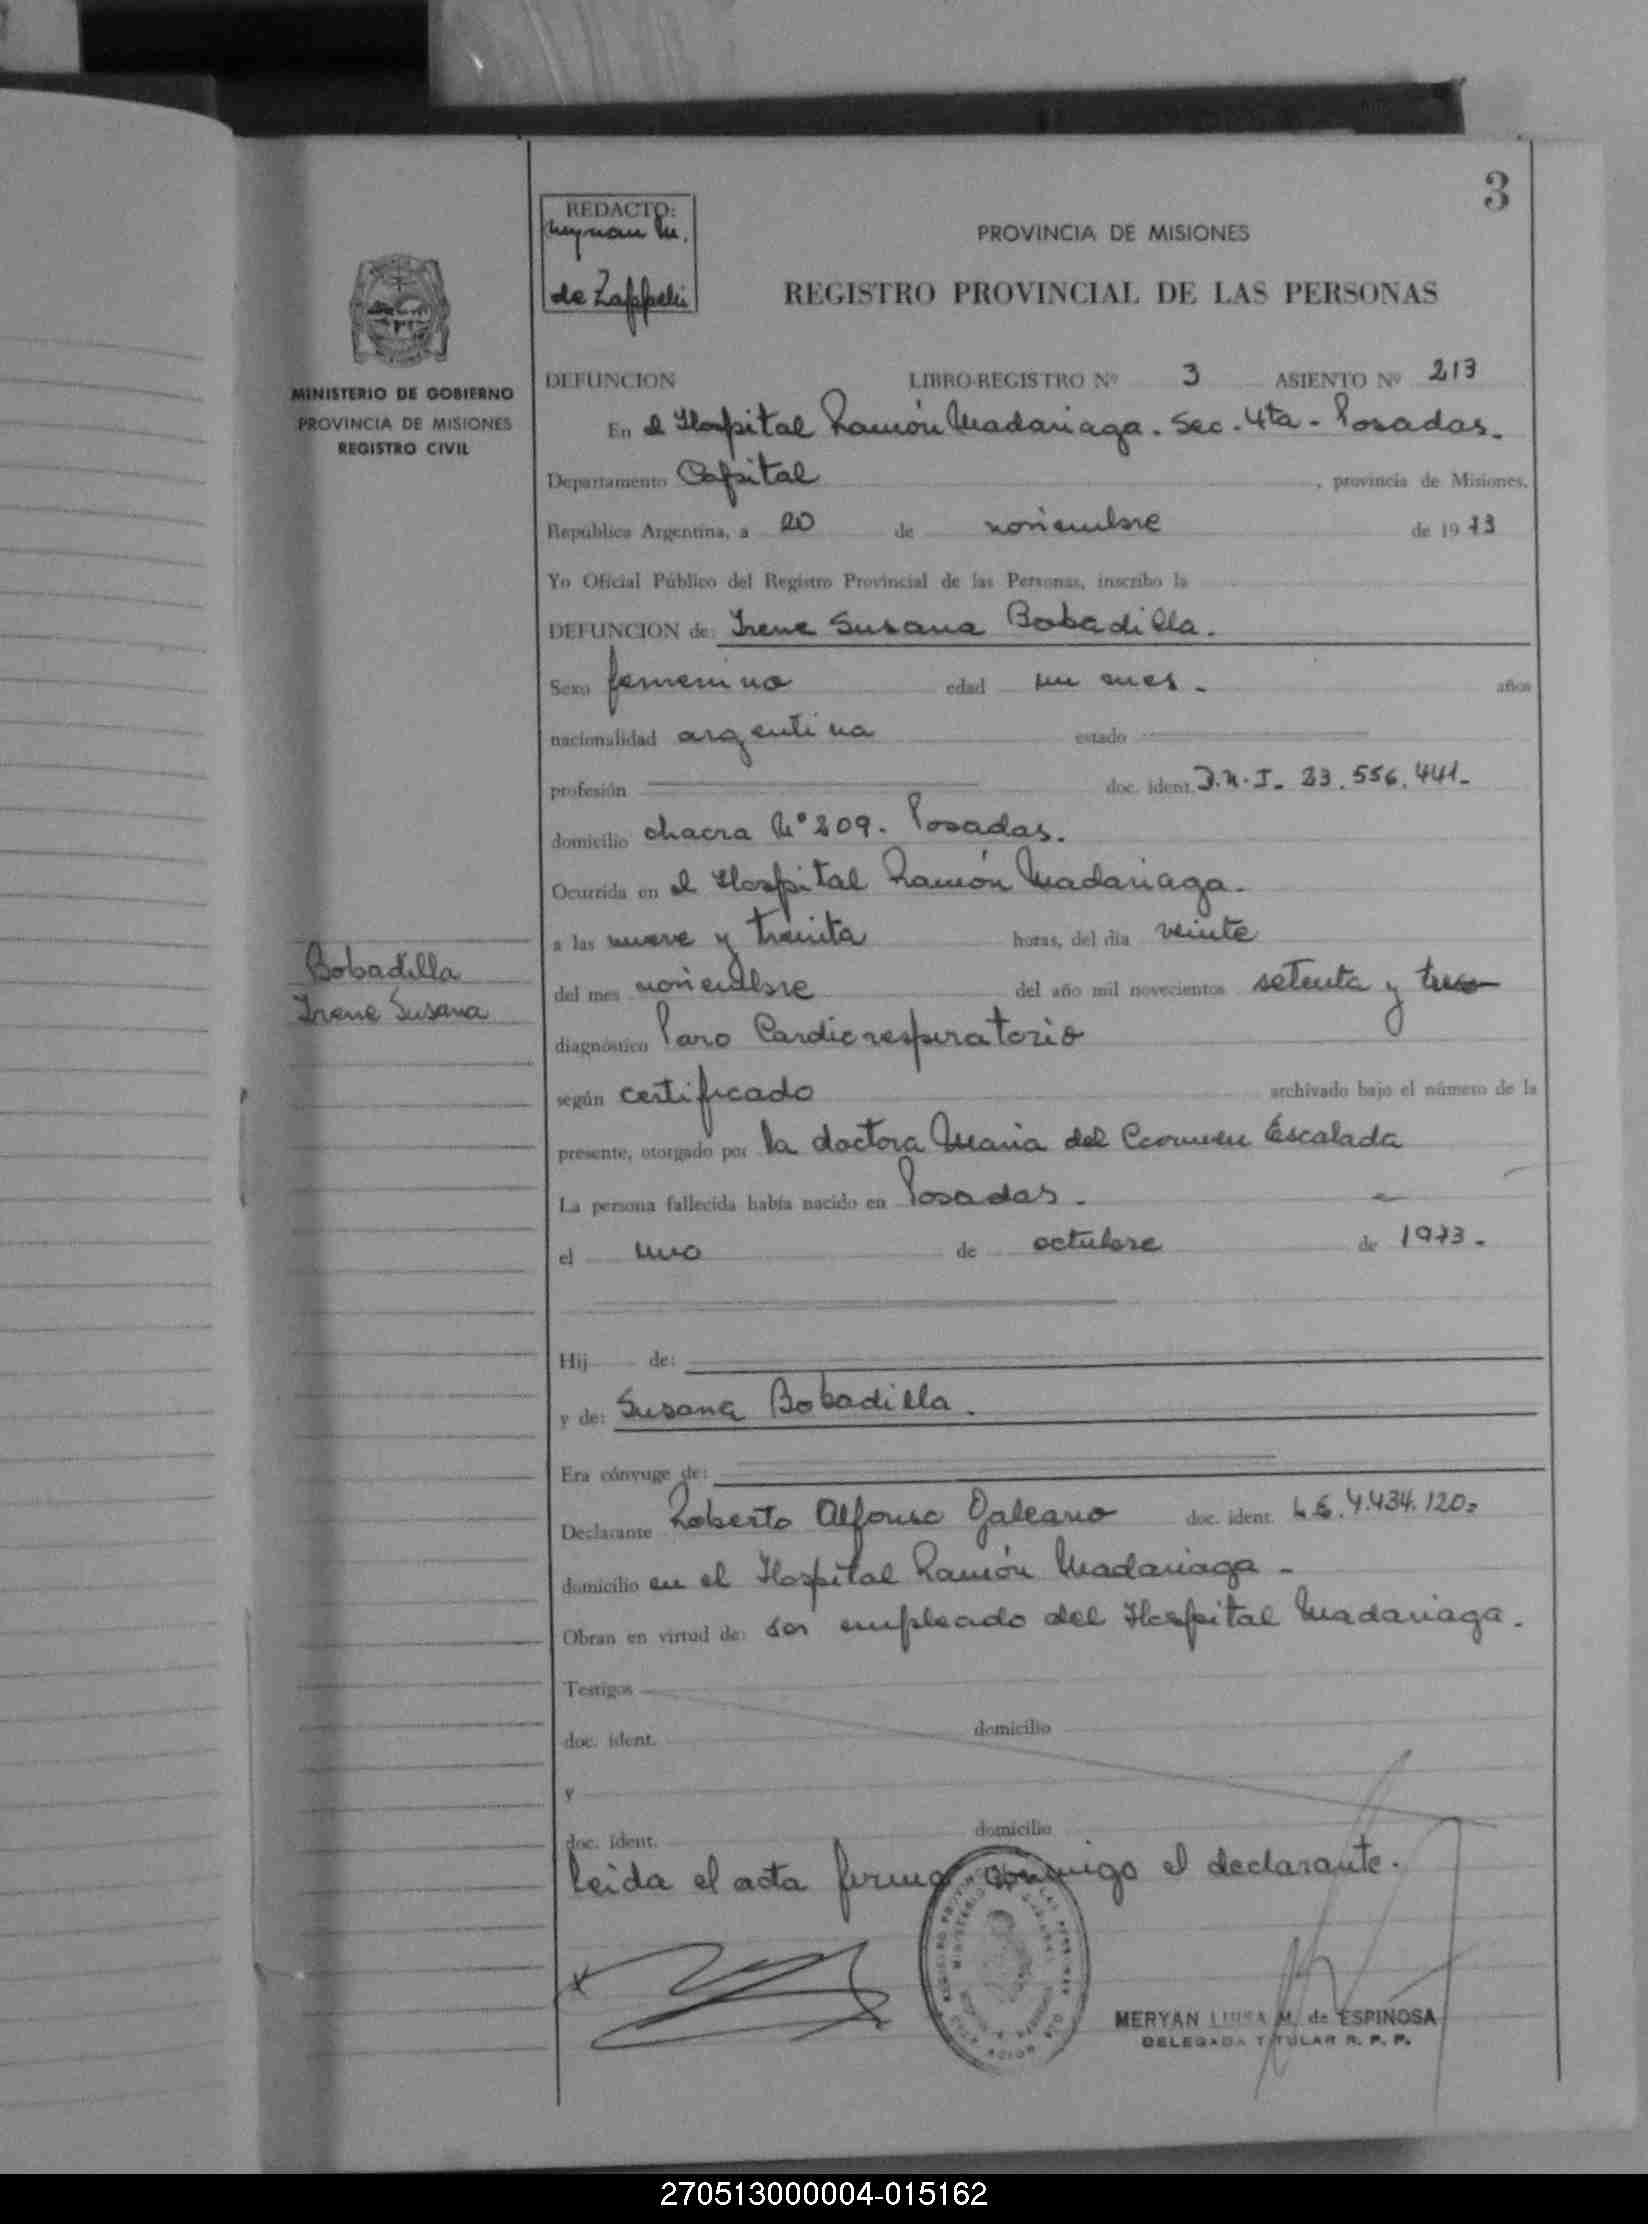 3
REDACTO:
de Zappelli
PROVINCIA DE MISIONES
REGISTRO PROVINCIAL DE LAS PERSONAS
MINISTERIO DE GOBIERNO
PROVINCIA DE MISIONES
REGISTRO CIVIL
DEFUNCION LIBRO-REGISTRO Nº 3 ASIENTO Nº 213
En el Hospital Ramón Madariaga. Sec. 4ta - Posadas.
Departamento Capital , provincia de Misiones,
República Argentina, a 20 de noviembre de 1973
Yo Oficial Público del Registro Provincial de las Personas, inscribo la
DEFUNCION de: Irene Susana Bobadilla.
Sexo femenino edad un mes. años
nacionalidad argentina estado
profesión doc. ident. D.N.I. 23.556.441.
domicilio chacra Nº 209. Posadas.
Ocurrida en el Hospital Ramón Madariaga.
a las nueve y treinta horas, del día veinte
Bobadilla
Irene Susana
del mes noviembre del año mil novecientos setenta y tres
diagnóstico Paro Cardiorespiratorio
según certificado archivado bajo el número de la
presente, otorgado por la doctora Maria del Carmen Escalada
La persona fallecida había nacido en Posadas.
el uno de octubre de 1973.
Hij de:
y de: Susana Bobadilla.
Era cónyuge de:
Declarante Roberto Alfonso Galeano doc. ident. L.E. 4.434.120.
domicilio en el Hospital Ramón Madariaga
Obran en virtud de: ser empleado del Hospital Madariaga.
Testigos
doc. ident. domicilio
y
doc. ident. domicilio
leida el acta firma conmigo el declarante.
MERYAN LUISA M. de ESPINOSA
DELEGADA TITULAR R. P. P.
270513000004-015162